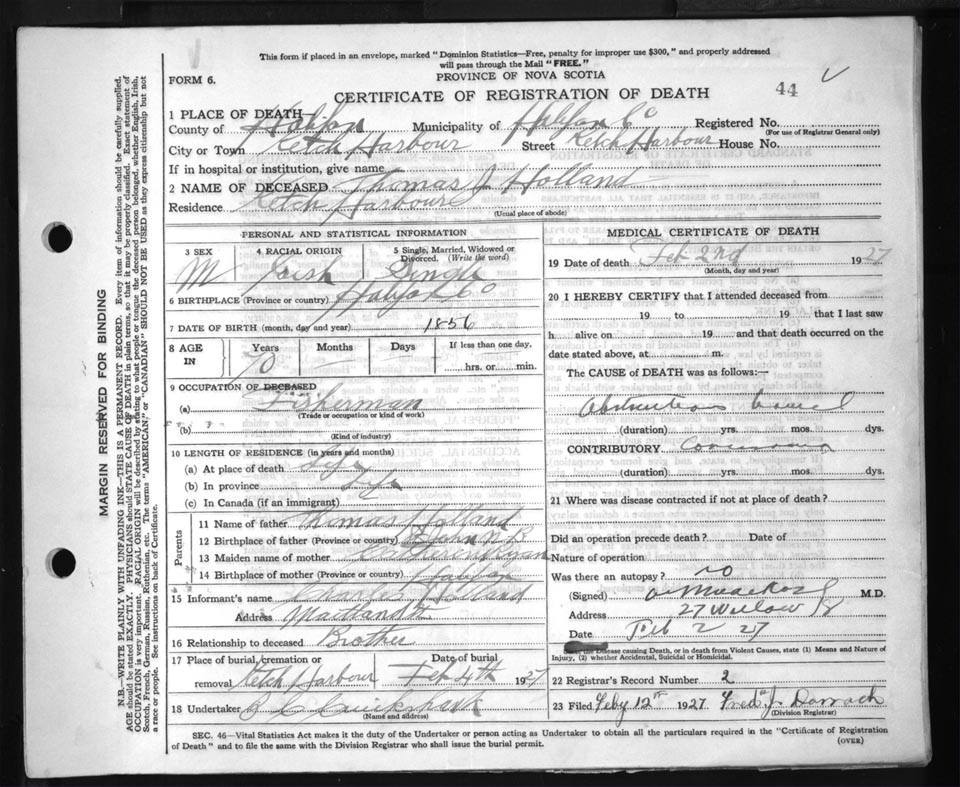 This form if placed in an envelope, marked "Dominion Statistics—Free, penalty for improper use $300," and properly addressed
will pass through the Mail "FREE."
FORM 6.
PROVINCE OF NOVA SCOTIA
44
CERTIFICATE OF REGISTRATION OF DEATH
1 PLACE OF DEATH—
County of Halifax Municipality of Halifax Co Registered No.
(For use of Registrar General only)
City or Town Ketch Harbour Street Ketch Harbour House No.
If in hospital or institution, give name
2 NAME OF DECEASED Thomas J Holland
Residence Ketch Harbour
(Usual place of abode)
PERSONAL AND STATISTICAL INFORMATION
3 SEX 4 RACIAL ORIGIN 5 Single, Married, Widowed or Divorced. (Write the word)
M Irish Single
6 BIRTHPLACE (Province or country) Halifax Co
7 DATE OF BIRTH (month, day and year) 1856
8 AGE IN Years Months Days If less than one day,
70 hrs. or min.
9 OCCUPATION OF DECEASED
(a) Fisherman
(Trade or occupation or kind of work)
(b)
(Kind of industry)
10 LENGTH OF RESIDENCE (in years and months)
(a) At place of death Life
(b) In province Life
(c) In Canada (if an immigrant)
Parents
11 Name of father Thomas Holland
12 Birthplace of father (Province or country) St John N B
13 Maiden name of mother
14 Birthplace of mother (Province or country) Halifax
15 Informant's name Holland
Address Maitland St
16 Relationship to deceased Brother
17 Place of burial, cremation or removal Ketch Harbour Date of burial Feb 4th 1927
18 Undertaker
(Name and address)
MEDICAL CERTIFICATE OF DEATH
19 Date of death Feb 2nd 1927
(Month, day and year)
20 I HEREBY CERTIFY that I attended deceased from
19 to 19 that I last saw
h alive on 19 and that death occurred on the
date stated above, at m.
The CAUSE of DEATH was as follows:—
Obstruction bowel
(duration) yrs. mos. dys.
CONTRIBUTORY
(duration) yrs. mos. dys.
21 Where was disease contracted if not at place of death?
Did an operation precede death? Date of
Nature of operation
Was there an autopsy? no
(Signed) M.D.
Address 27 Willow St
Date Feb 2 27
the Disease causing Death, or in death from Violent Causes, state (1) Means and Nature of
Injury, (2) whether Accidental, Suicidal or Homicidal.
22 Registrar's Record Number 2
23 Filed Feby 12th 1927 Fred J. Darrach
(Division Registrar)
SEC. 46—Vital Statistics Act makes it the duty of the Undertaker or person acting as Undertaker to obtain all the particulars required in the "Certificate of Registration
of Death" and to file the same with the Division Registrar who shall issue the burial permit.
(OVER)
MARGIN RESERVED FOR BINDING
N.B.—WRITE PLAINLY WITH UNFADING INK—THIS IS A PERMANENT RECORD. Every item of information should be carefully supplied.
AGE should be stated EXACTLY. PHYSICIANS should STATE CAUSE OF DEATH in plain terms, so that it may be properly classified. Exact statement of
OCCUPATION is very important. RACIAL ORIGIN will be described by stating to what people or tongue the deceased person belonged, whether English, Irish,
Scotch, French, German, Russian, Ruthenian, etc. The terms "AMERICAN," or "CANADIAN" SHOULD NOT BE USED as they express citizenship but not
a race or people. See instructions on back of Certificate.